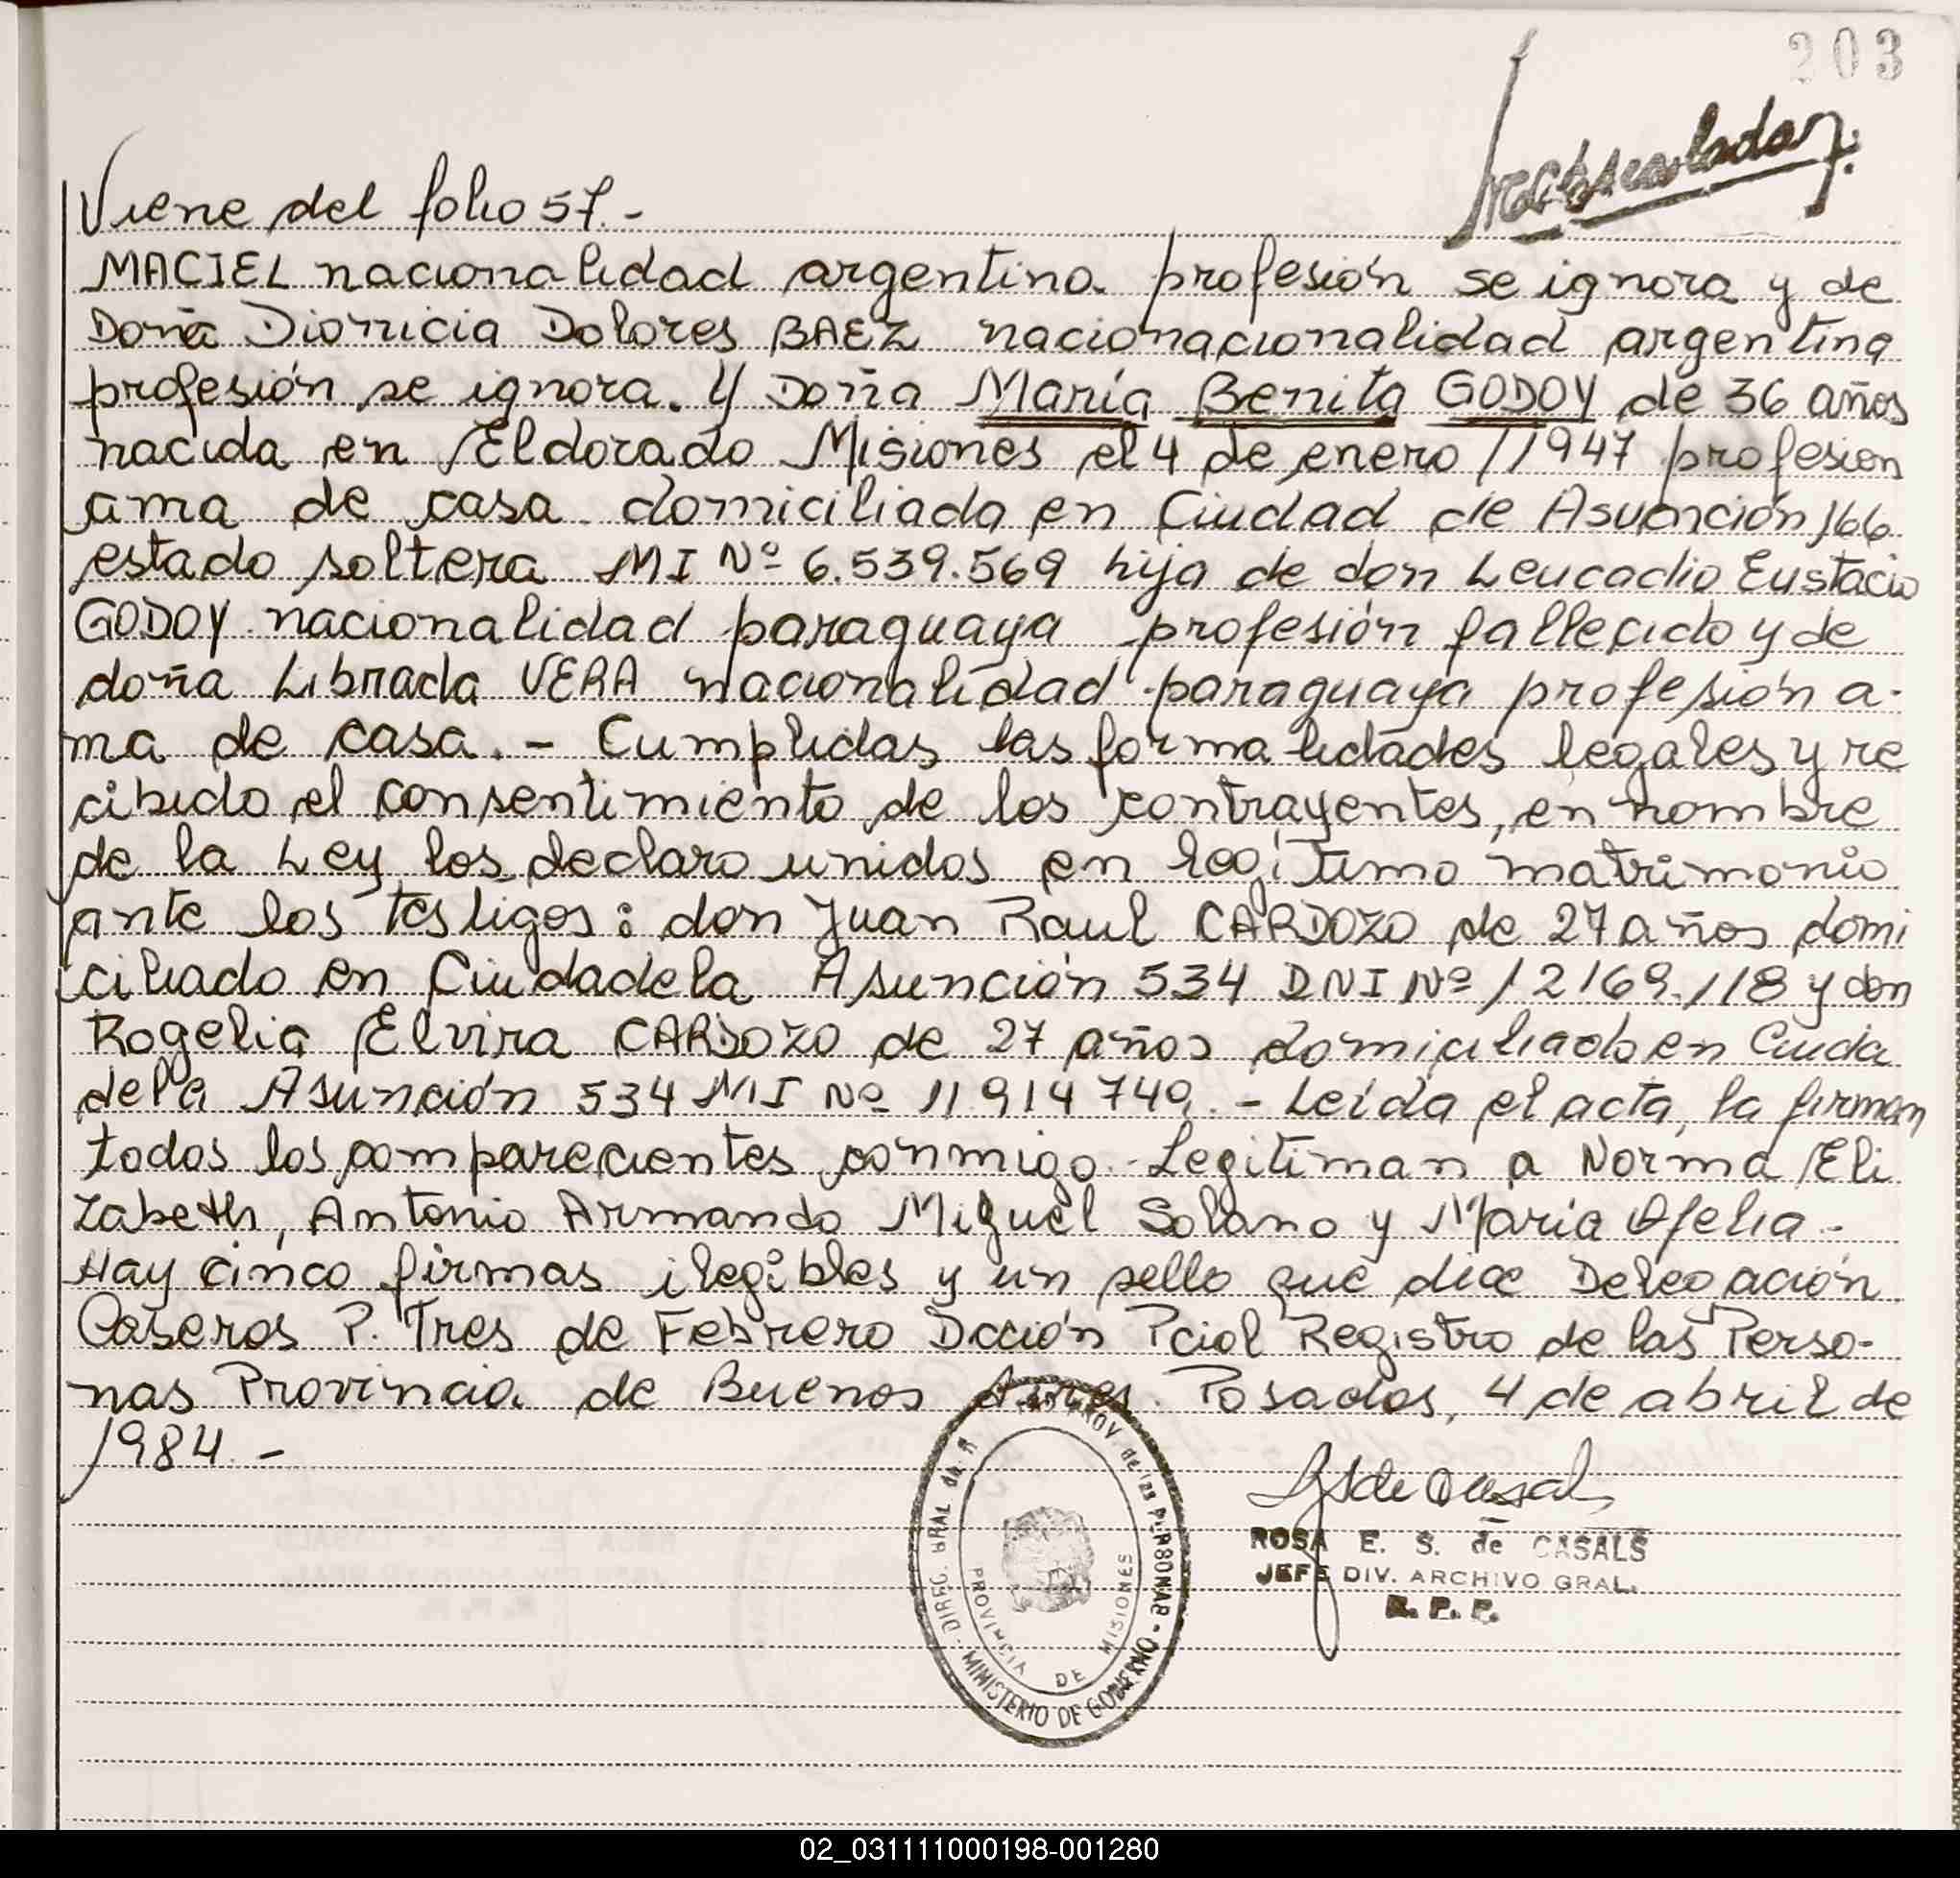 203
Viene del folio 57.-
MACIEL nacionalidad argentina profesión se ignora y de
Doña Dionicia Dolores BAEZ nacionacionalidad argentina
profesión se ignora. Y Doña María Benita GODOY de 36 años
nacida en Eldorado Misiones el 4 de enero /1947 profesion
ama de casa domiciliada en Ciudad de Asunción 166
estado soltera MI Nº 6.539.569 hija de don Leucadio Eustacio
GODOY nacionalidad paraguaya profesión fallecido y de
doña Librada VERA nacionalidad paraguaya profesión a-
ma de casa.- Cumplidas las formalidades legales y re
cibido el consentimiento de los contrayentes, en nombre
de la Ley los declaro unidos en legítimo matrimonio
ante los testigos: don Juan Raul CARDOZO de 27 años domi
ciliado en Ciudadela Asunción 534 DNI Nº 12169.118 y don
Rogelia Elvira CARDOZO de 27 años domiciliado en Ciuda
dela Asunción 534 MI Nº 11.914 749.- Leída el acta, la firman
todos los comparecientes conmigo.- Legitiman a Norma Eli
zabeth, Antonio Armando Miguel Solano y María Ofelia.-
Hay cinco firmas ilegibles y un sello que dice Delegación
Caseros P. Tres de Febrero Dcción Pcial Registro de las Perso-
nas Provincia de Buenos Aires. Posadas, 4 de abril de
1984.-
PROV. de las PERSONAS
PROVINCIA DE MISIONES
MINISTERIO DE GOBIERNO
ROSA E. S. de CASALS
JEFE DIV. ARCHIVO GRAL.
R. P. P.
02_031111000198-001280